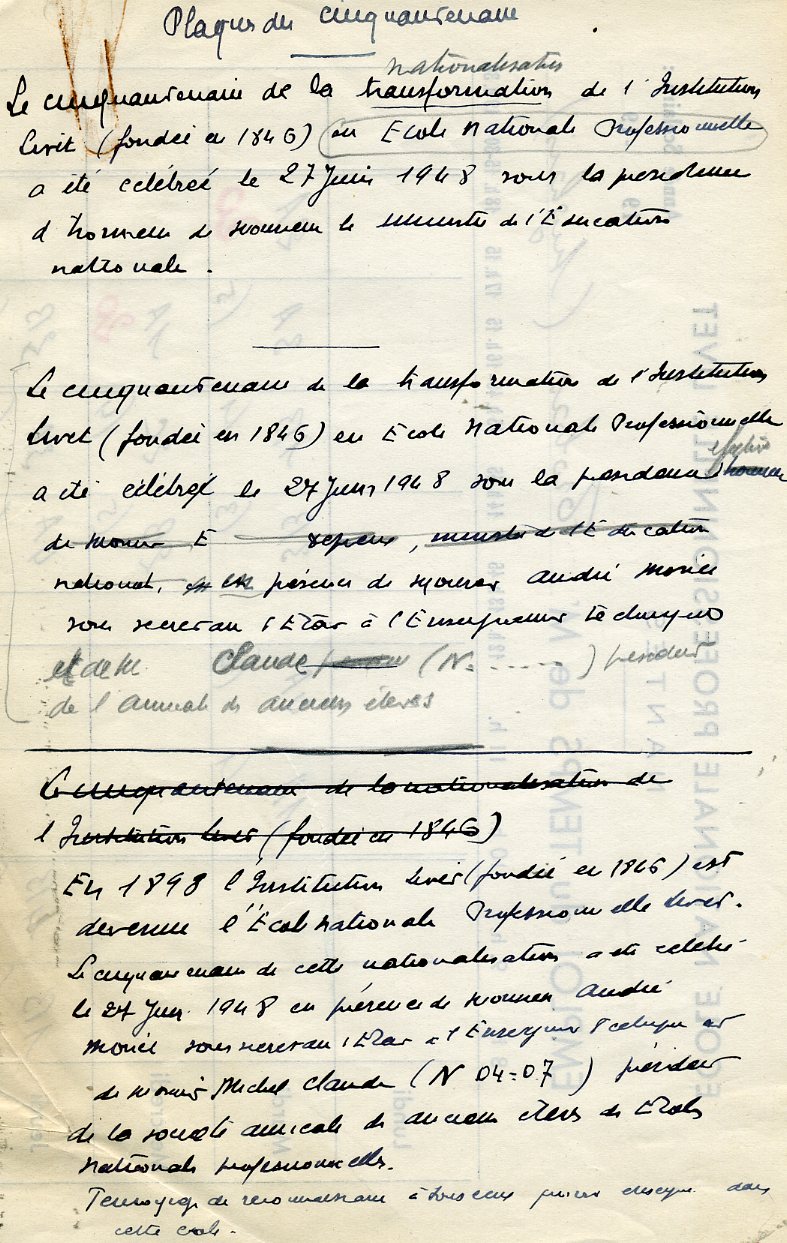 Plaques du cinquantenaire
nationalisation
Le cinquantenaire de la transformation de l'Institution
Livet (fondée en 1846) en Ecole Nationale Professionnelle
a été célébré le 27 Juin 1948 sous la présidence
d'honneur de monsieur le ministre de l'Education
nationale.
Le cinquantenaire de la transformation de l'Institution
Livet (fondée en 1846) en Ecole Nationale Professionnelle
a été célébré le 27 Juin 1948 sous la présidence
de monsieur E , ministre de l'Education
national, en présence de monsieur André Morice
sous secretaire d'Etat à l'Enseignement technique
et de M Claude (N. ------) président
de l'amicale des anciens élèves
Le cinquantenaire de la nationalisation de
l'Institution Livet (fondée en 1846)
En 1898 l'Institution Livet (fondée en 1846) est
devenue l'Ecole Nationale Professionnelle Livet.
Le cinquantenaire de cette nationalisation a été célébré
le 27 Juin 1948 en présence de monsieur André
Morice sous secretaire d'Etat à l'Enseignement Technique et
de monsieur Michel Claude (N 04-07) président
de la société amicale des anciens élèves des Ecoles
Nationales professionnelles.
Témoignage de reconnaissance à tous ceux dans
cette école.
ECOLE NATIONALE PROFESSIONNELLE LIVET
NANTES
EMPLOI du TEMPS de M
Lundi
Mardi
Jeudi